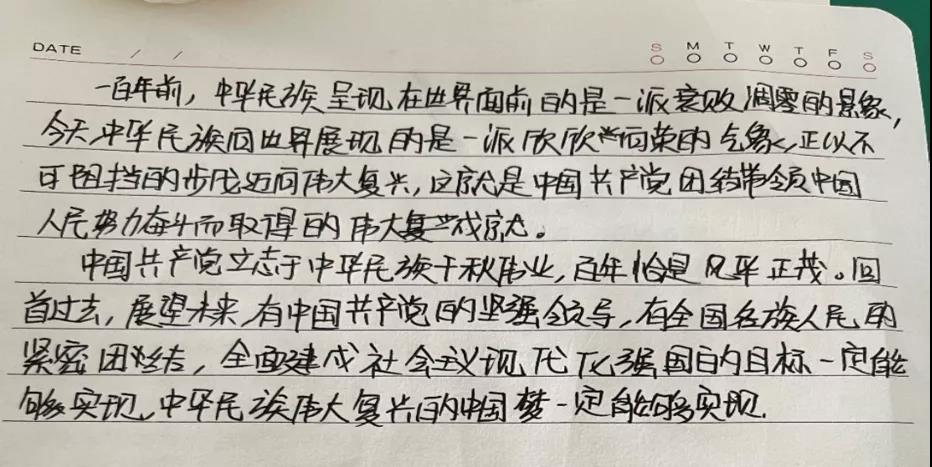 DATE / /
S M T W T F S
一百年前，中华民族呈现在世界面前的是一派衰败凋零的景象，
今天，中华民族向世界展现的是一派欣欣向荣的气象，正以不
可阻挡的步伐迈向伟大复兴，这就是中国共产党团结带领中国
人民努力奋斗而取得的伟大复兴成就。
中国共产党立志于中华民族千秋伟业，百年恰是风华正茂。回
首过去，展望未来，有中国共产党的坚强领导，有全国各族人民的
紧密团结，全面建成社会主义现代化强国的目标一定能
够实现，中华民族伟大复兴的中国梦一定能够实现.